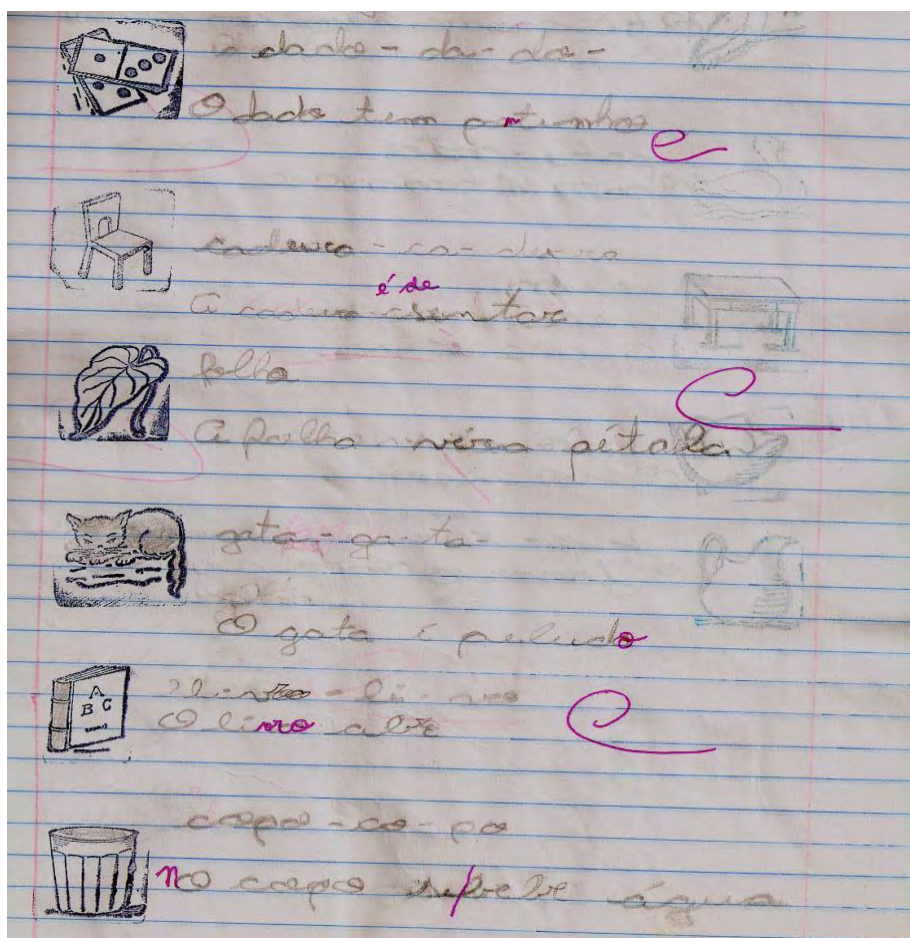 dado - da - do -
O dado tem pintinhos
e
cadeira - ca - dei - ra
é de
A cadeira sentar
folha
C
A folha vira pétala
gata - ga - ta -
O gata é peludo
livro - li - vro
A
B C
O livro abre
C
copo - co - po
no copo se bebe água